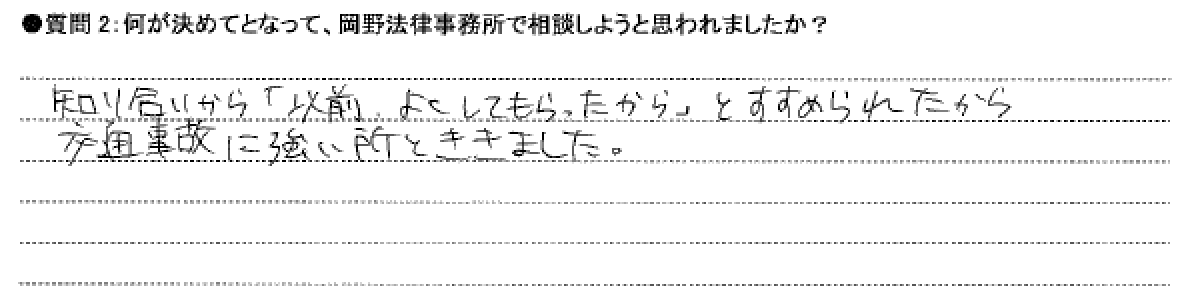 ●質問2:何が決めてとなって、岡野法律事務所で相談しようと思われましたか？
知り合いから「以前、よくしてもらったから」とすすめられたから
交通事故に強い所とききました。